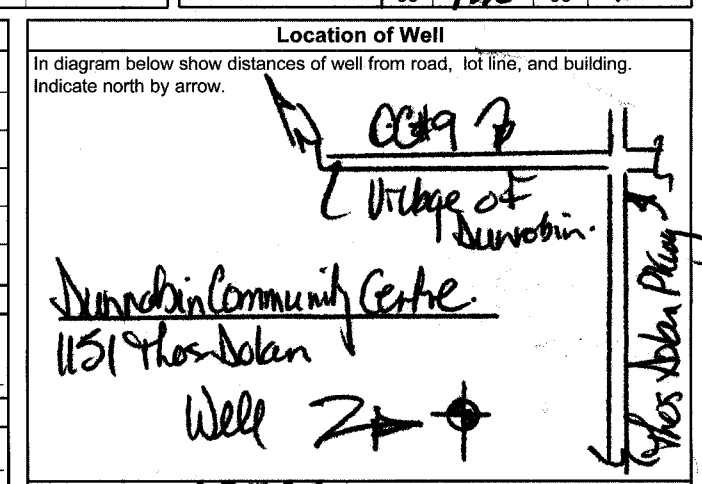 Location of Well
In diagram below show distances of well from road, lot line, and building.
Indicate north by arrow.
N
Village of
Dunrobin.
Thos Dolan Pkwy
Dunrobin Community Centre.
1151 Thos Dolan
Well